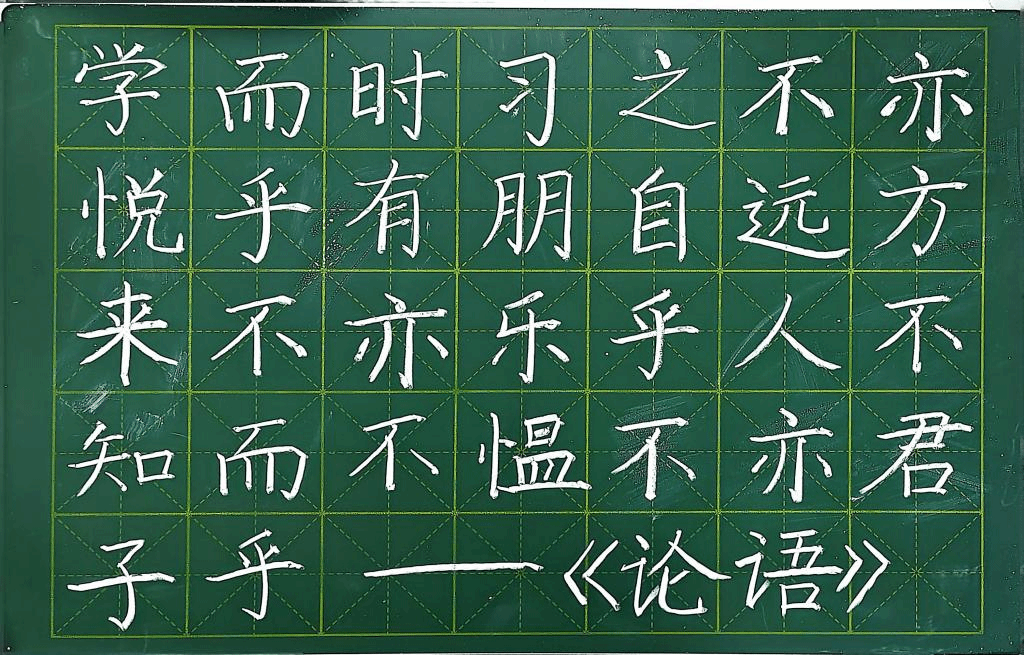 学而时习之不亦
悦乎有朋自远方
来不亦乐乎人不
知而不愠不亦君
子乎——《论语》